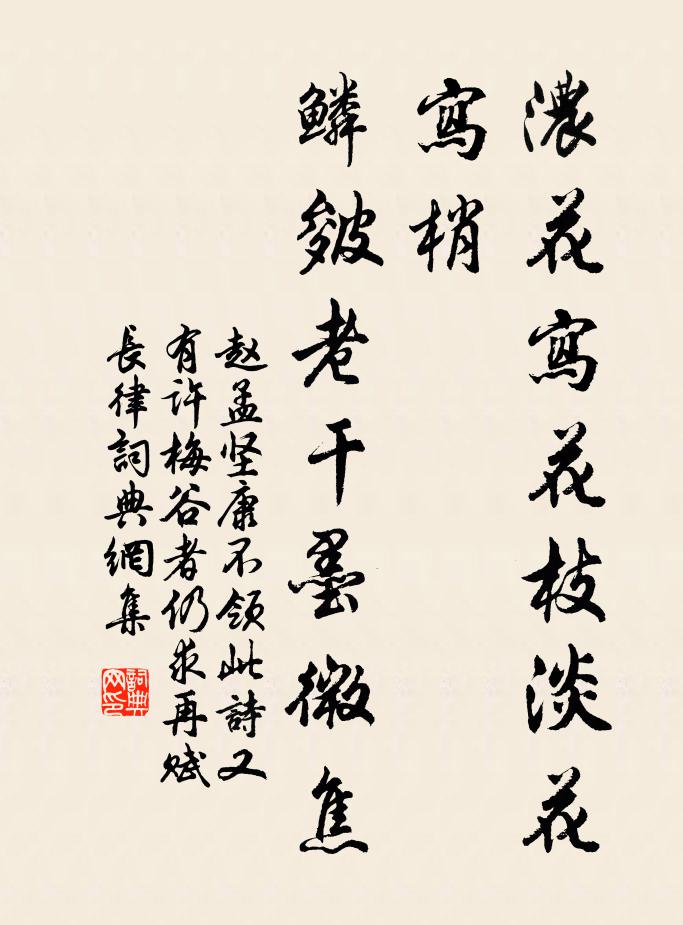 濃花寫花枝淡花
寫梢
鱗皴老干墨微焦
赵孟坚康不领此詩又
有许梅谷者仍求再赋
長律詞典網集
詞典网印